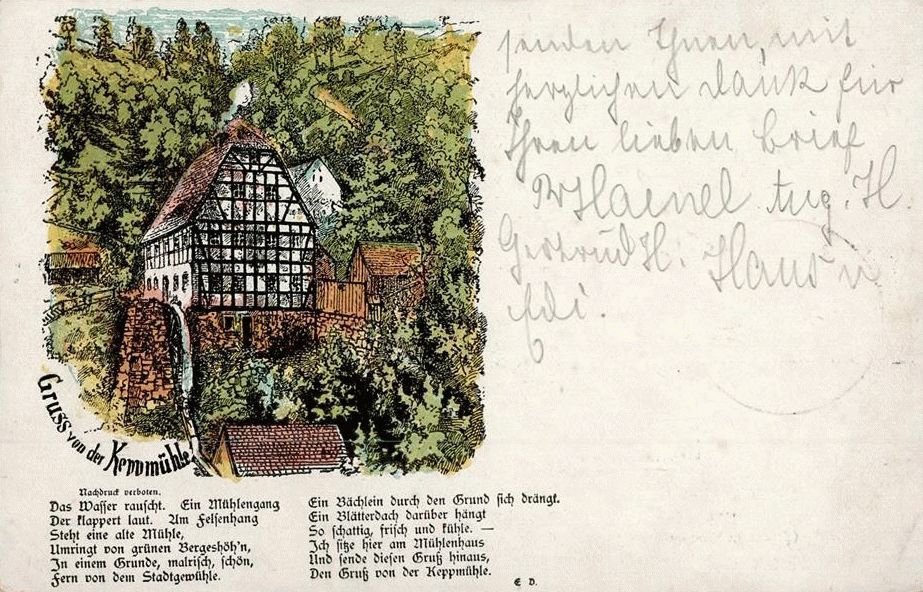 senden Ihnen, mit
herzlichen Dank für
Ihren lieben Brief
Haenel Aug. H.
Gertrud H. Hans u
Edi.
Gruss von der Keppmühle
Nachdruck verboten.
Das Wasser rauscht. Ein Mühlengang
Der klappert laut. Am Felsenhang
Steht eine alte Mühle,
Umringt von grünen Bergeshöh'n,
In einem Grunde, malrisch, schön,
Fern von dem Stadtgewühle.
Ein Bächlein durch den Grund sich drängt.
Ein Blätterdach darüber hängt
So schattig, frisch und kühle. —
Ich sitze hier am Mühlenhaus
Und sende diesen Gruß hinaus,
Den Gruß von der Keppmühle.
E D.